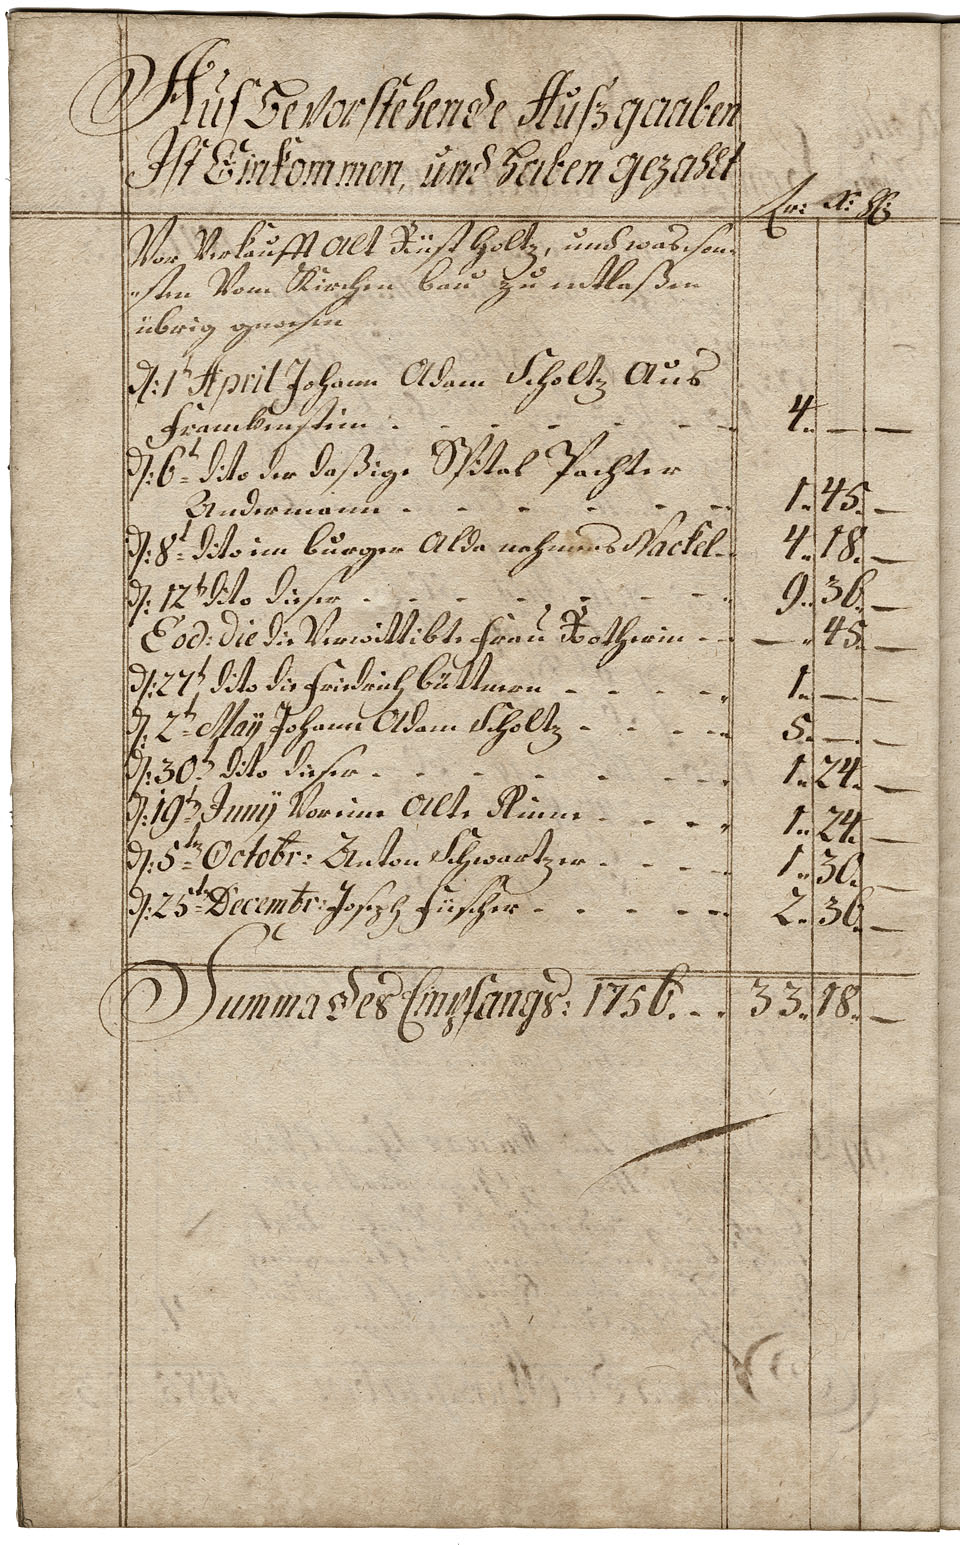 Auf Bevorstehende Außgaaben
Ist Einkommen, und haben gezahlt
fr: x: H:
Vor Verkaufft Alt Rüst Holtz, und was son-
-sten Vom Kirchen bau zu entlaßen
übrig gewesen
d: 1t April Johann Adam Scholtz Aus
Franckenstein . - - - - - - 4. — —
d: 6t dito der dasige Spital Pachter
Andermann - - - - - - 1. 45. —
d: 8t dito im burger Alda nahmens Nackel - 4. 18. —
d: 12t dito dieser - - - - - - 9. 36. —
Eod: die die Verwittibte Frau Rotherin - - — 45. —
d: 27t dito die Friedrich Büttnern - - - - 1. — —
d: 2t May Johann Adam Scholtz - - - - 5. — —
d: 30t dito dieser - - - - - - 1. 24. —
d: 19t Juny Vor eine Alte Rinne - - - - 1. 24. —
d: 5ten Octobr: Anton Schwartzer - - - - 1. 30. —
d: 25ten Decembr: Joseph Füscher - - - - - 2. 36. —
Summa des Empfangs: 1756. - - 33. 18. —